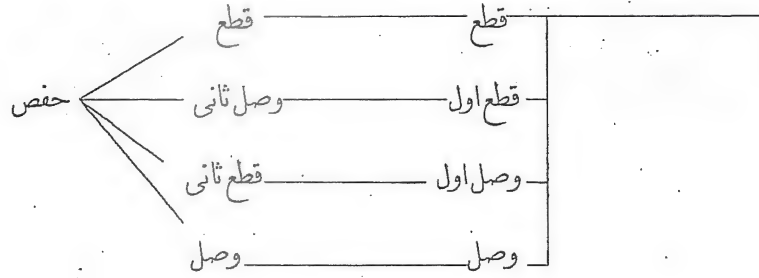 قطع قطع
قطع اول وصل ثانی حفص
وصل اول قطع ثانی
وصل وصل